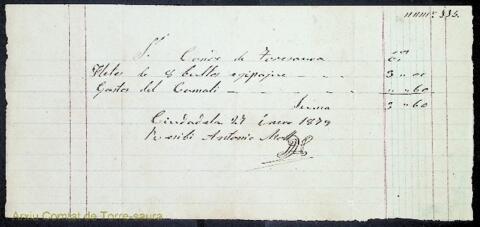 num.º 335.
Sr. Conde de Torresaura
Fletes de 8 bultos equipaje 3 " 00
Gastos del Camalí " " 60
Suma 3 " 60
Ciudadela 27 Enero 1879
Recibí Antonio Moll
Arxiu Comtat de Torre-saura